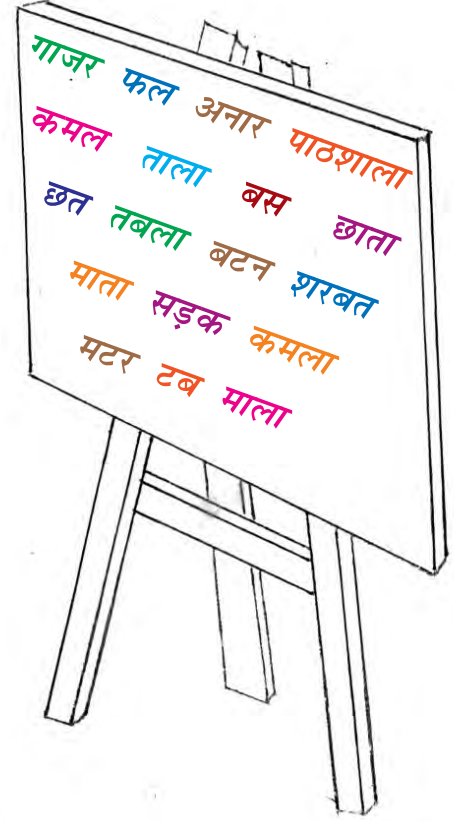 गाजर फल अनार पाठशाला
कमल ताला बस छाता
छत तबला बटन शरबत
माता सड़क कमला
मटर टब माला